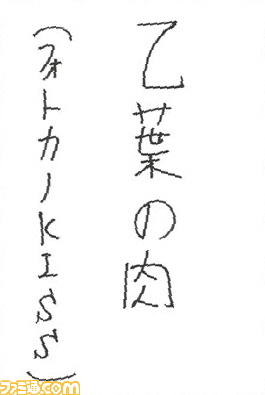 乙葉の肉
(フォトカノKISS)
ファミ通.com